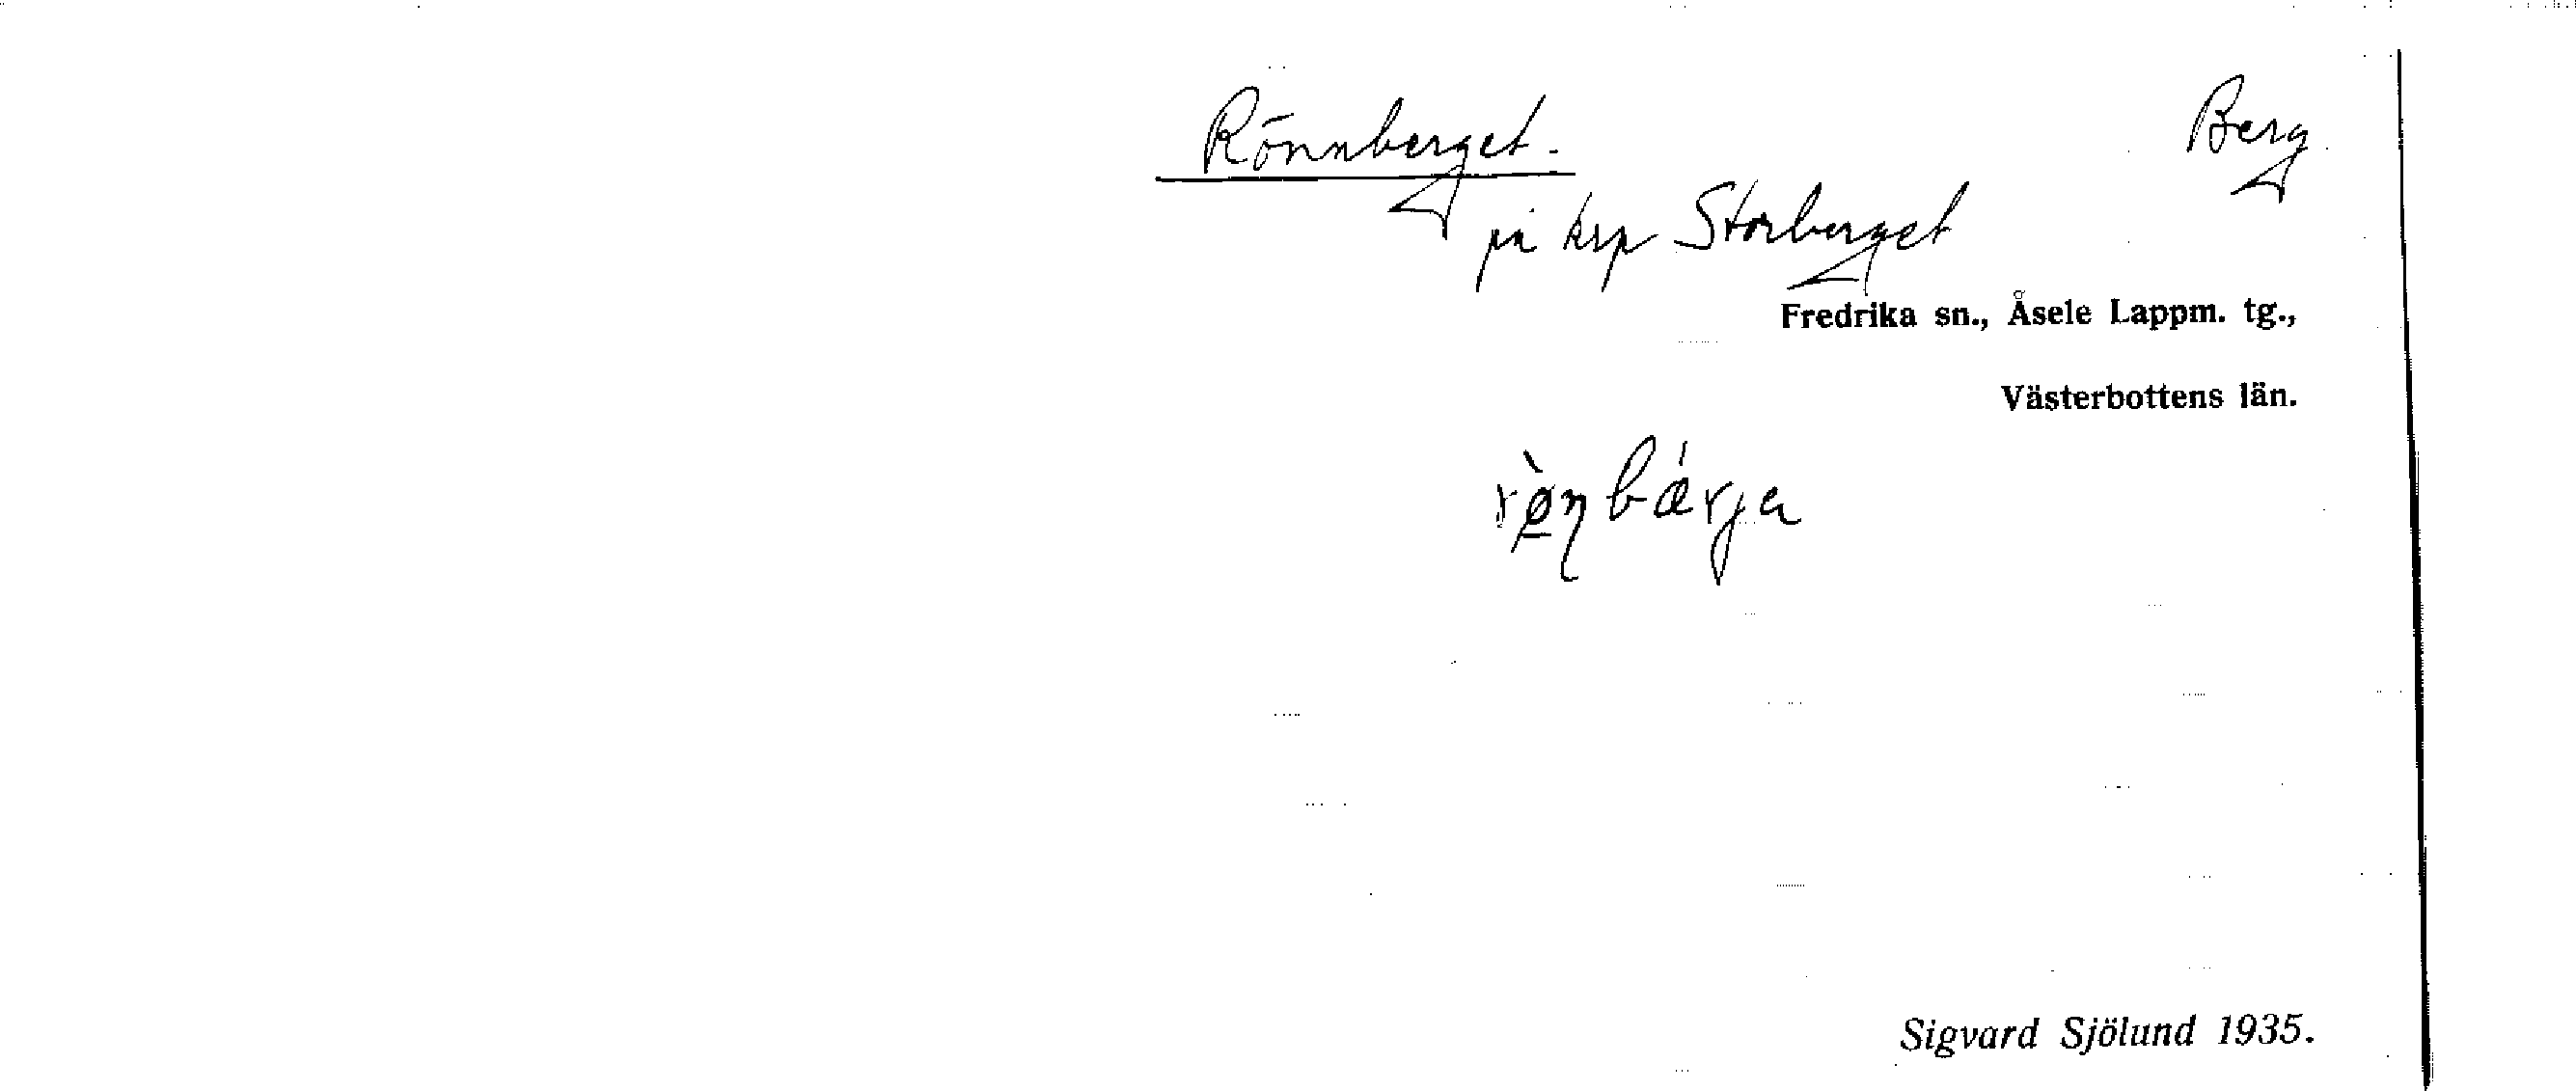 Rönnberget. Berg
på krp Storberget
Fredrika sn., Åsele Lappm. tg.,
Västerbottens län.
rø̀nbárga
Sigvard Sjölund 1935.